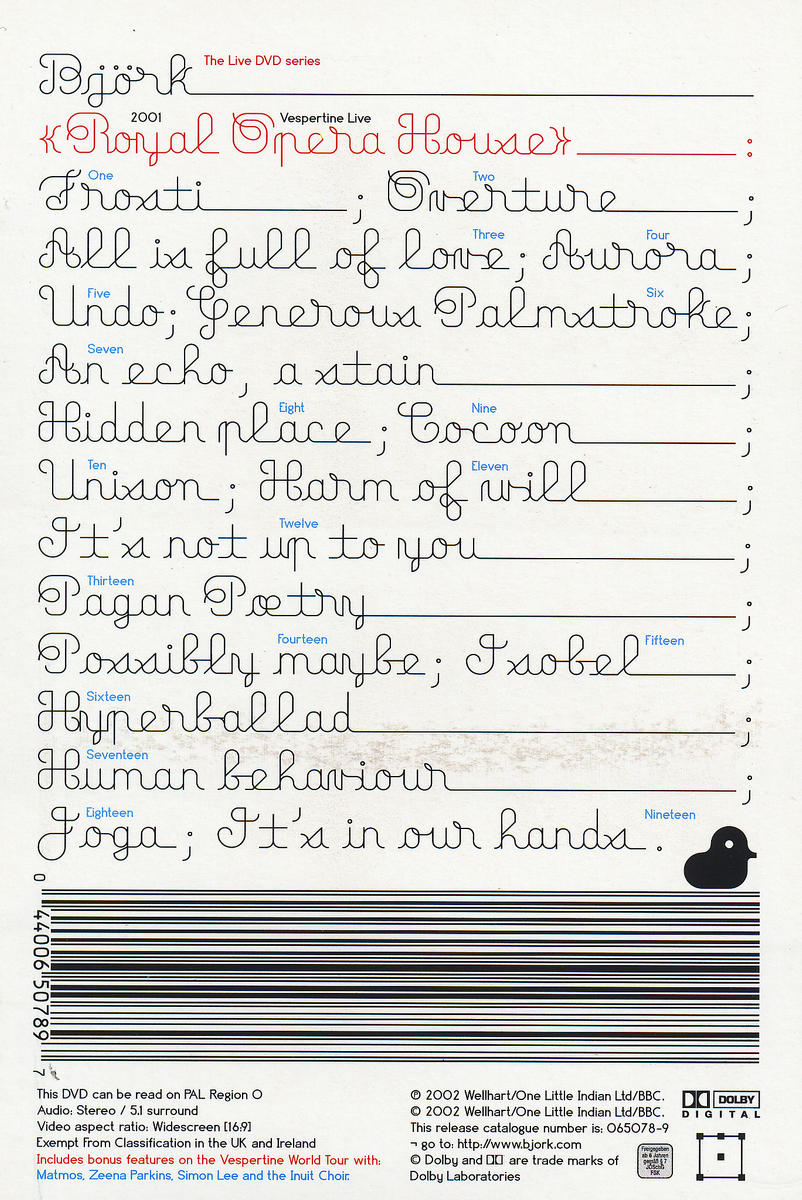 Björk The Live DVD series
2001 Vespertine Live
«Royal Opera House» :
One Two
Frosti ; Overture ;
Three Four
All is full of love; Aurora ;
Five Six
Undo; Generous Palmstroke;
Seven
An echo, a stain ;
Eight Nine
Hidden place ; Cocoon ;
Ten Eleven
Unison ; Harm of will ;
Twelve
It's not up to you ;
Thirteen
Pagan Poetry ;
Fourteen Fifteen
Possibly maybe; Isobel ;
Sixteen
Hyperballad ;
Seventeen
Human behaviour ;
Eighteen Nineteen
Joga ; It's in our hands .
0 44006 50789 7
This DVD can be read on PAL Region 0
Audio: Stereo / 5.1 surround
Video aspect ratio: Widescreen [16:9]
Exempt From Classification in the UK and Ireland
Includes bonus features on the Vespertine World Tour with:
Matmos, Zeena Parkins, Simon Lee and the Inuit Choir.
℗ 2002 Wellhart/One Little Indian Ltd/BBC.
© 2002 Wellhart/One Little Indian Ltd/BBC.
This release catalogue number is: 065078-9
¬ go to: http://www.bjork.com
© Dolby and DD are trade marks of
Dolby Laboratories
DOLBY
DIGITAL
Freigegeben
ab 6 Jahren
gemäß § 7
JÖSchG
FSK